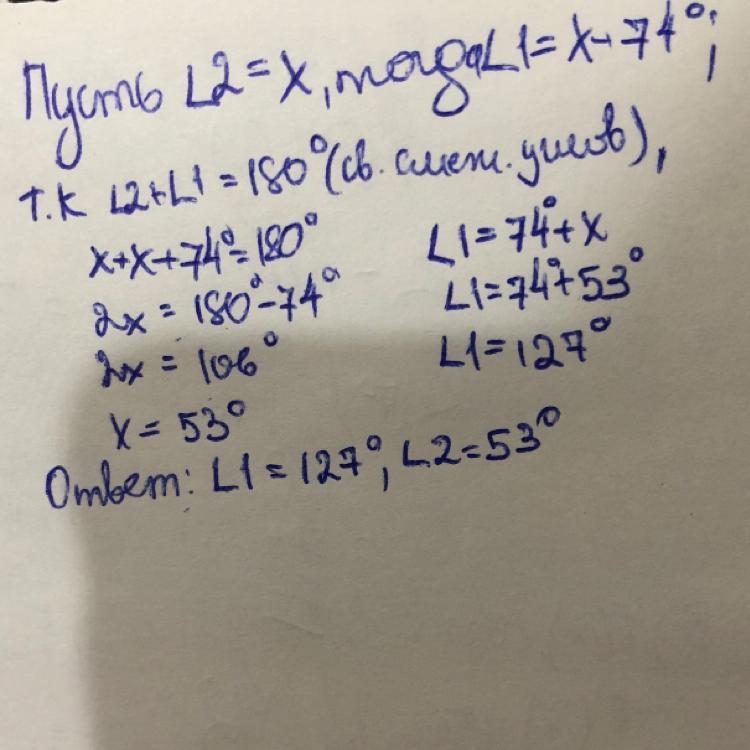 Пусть ∠2 = x, тогда ∠1 = x + 74°;
т.к ∠2+∠1 = 180° (св. смеж. углов),
x+x+74°=180°
2x = 180°-74°
2x = 106°
x = 53°
∠1 = 74°+x
∠1=74°+53°
∠1=127°
Ответ: ∠1 = 127°, ∠2=53°